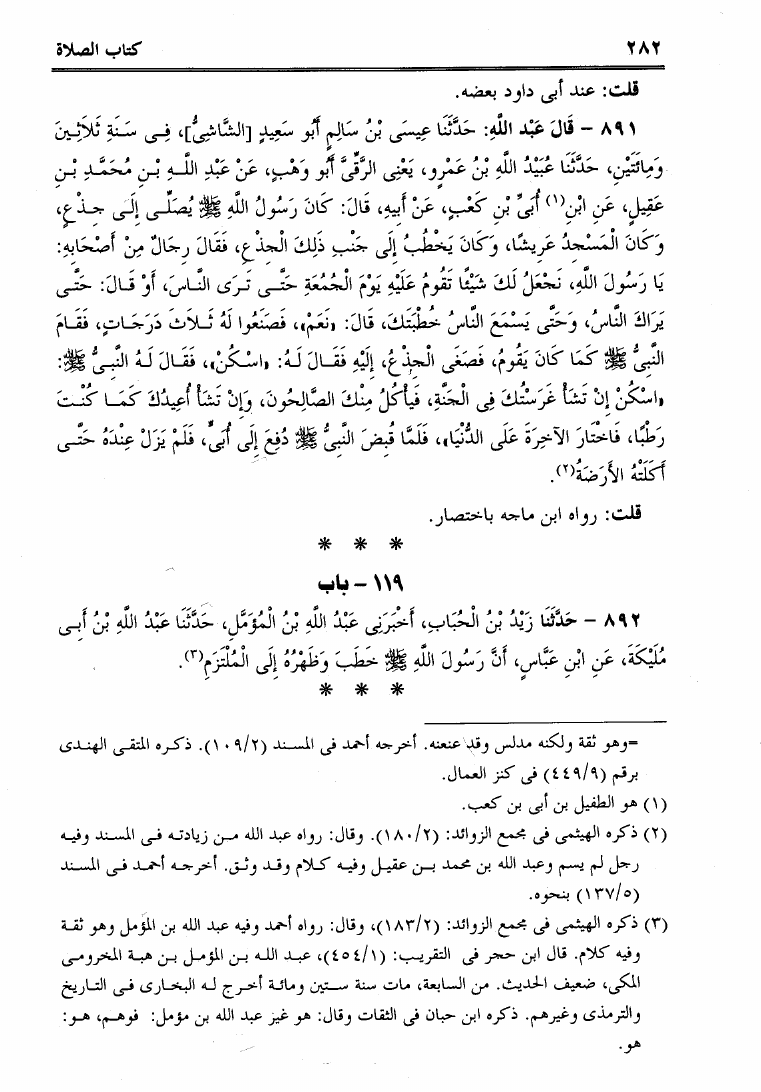 ٢٨٢
كتاب الصلاة
قلت: عند أبى داود بعضه.
٨٩١ – قَالَ عَبْد اللَّهِ: حَدَّثَنَا عِيسَى بْنُ سَالِمٍ أَبُو سَعِيدٍ [الشَّاشِىُّ]، فِى سَنَةِ ثَلاَثِينَ
وَمِائَتَيْنِ، حَدَّثَنَا عُبَيْدُ اللَّهِ بْنُ عَمْرٍو، يَعْنِى الرَّقِّىَّ أَبُو وَهْبٍ، عَنْ عَبْدِ اللَّهِ بْنِ مُحَمَّدِ بْنِ
عَقِيلٍ، عَنِ ابْنِ(١) أُبَىِّ بْنِ كَعْبٍ، عَنْ أَبِيهِ، قَالَ: كَانَ رَسُولُ اللَّهِ ﷺ يُصَلِّى إِلَى جِذْعٍ،
وَكَانَ الْمَسْجِدُ عَرِيشًا، وَكَانَ يَخْطُبُ إِلَى جَنْبِ ذَلِكَ الْجِذْعِ، فَقَالَ رِجَالٌ مِنْ أَصْحَابِهِ:
يَا رَسُولَ اللَّهِ، نَجْعَلُ لَكَ شَيْئًا تَقُومُ عَلَيْهِ يَوْمَ الْجُمُعَةِ حَتَّى تَرَى النَّاسَ، أَوْ قَالَ: حَتَّى
يَرَاكَ النَّاسُ، وَحَتَّى يَسْمَعَ النَّاسُ خُطْبَتَكَ، قَالَ: «نَعَمْ»، فَصَنَعُوا لَهُ ثَلاَثَ دَرَجَاتٍ، فَقَامَ
النَّبِىُّ ﷺ كَمَا كَانَ يَقُومُ، فَصَغَى الْجِذْعُ، إِلَيْهِ فَقَالَ لَهُ: «اسْكُنْ»، فَقَالَ لَهُ النَّبِىُّ ﷺ:
«اسْكُنْ إِنْ تَشَأْ غَرَسْتُكَ فِى الْجَنَّةِ، فَيَأْكُلُ مِنْكَ الصَّالِحُونَ، وَإِنْ تَشَأْ أُعِيدُكَ كَمَا كُنْتَ
رَطْبًا، فَاخْتَارَ الآخِرَةَ عَلَى الدُّنْيَا»، فَلَمَّا قُبِضَ النَّبِىُّ ﷺ دُفِعَ إِلَى أُبَىٍّ، فَلَمْ يَزَلْ عِنْدَهُ حَتَّى
أَكَلَتْهُ الأَرَضَةُ(٢).
قلت: رواه ابن ماجه باختصار.
* * *
١١٩ – باب
٨٩٢ – حَدَّثَنَا زَيْدُ بْنُ الْحُبَابِ، أَخْبَرَنِى عَبْدُ اللَّهِ بْنُ الْمُؤَمَّلِ، حَدَّثَنَا عَبْدُ اللَّهِ بْنُ أَبِى
مُلَيْكَةَ، عَنِ ابْنِ عَبَّاسٍ، أَنَّ رَسُولَ اللَّهِ ﷺ خَطَبَ وَظَهْرُهُ إِلَى الْمُلْتَزَمِ(٣).
* * *
=وهو ثقة ولكنه مدلس وقد عنعنه. أخرجه أحمد فى المسند (١٠٩/٢). ذكره المتقى الهندى
برقم (٤٤٩/٩) فى كنز العمال.
(١) هو الطفيل بن أبى بن كعب.
(٢) ذكره الهيثمى فى مجمع الزوائد: (١٨٠/٢). وقال: رواه عبد الله من زيادته فى المسند وفيه
رجل لم يسم وعبد الله بن محمد بن عقيل وفيه كلام وقد وثق. أخرجه أحمد فى المسند
(١٣٧/٥) بنحوه.
(٣) ذكره الهيثمى فى مجمع الزوائد: (١٨٣/٢)، وقال: رواه أحمد وفيه عبد الله بن المؤمل وهو ثقة
وفيه كلام. قال ابن حجر فى التقريب: (٤٥٤/١)، عبد الله بن المؤمل بن هبة المخرومى
المكى، ضعيف الحديث. من السابعة، مات سنة ستين ومائة أخرج له البخارى فى التاريخ
والترمذى وغيرهم. ذكره ابن حبان فى الثقات وقال: هو غير عبد الله بن مؤمل: فوهم، هو:
هو.